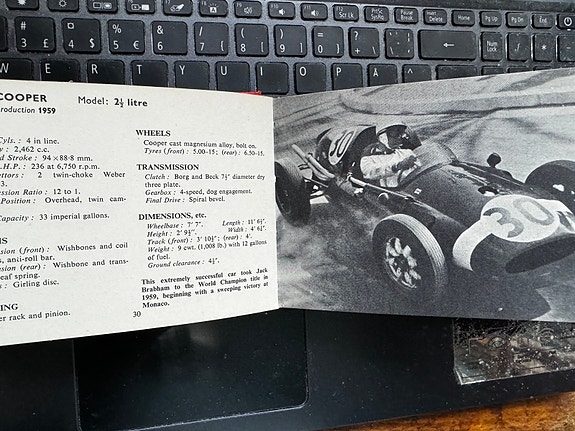 COOPER Model: 2½ litre
roduction 1959
Cyls.: 4 in line.
: 2,462 c.c.
d Stroke: 94×88·8 mm.
.H.P.: 236 at 6,750 r.p.m.
ettors: 2 twin-choke Weber
3.
ession Ratio: 12 to 1.
Position: Overhead, twin cam-
Capacity: 33 imperial gallons.
NS
ension (front): Wishbones and coil
s, anti-roll bar.
ension (rear): Wishbone and trans-
leaf spring.
: Girling disc.
ING
er rack and pinion.
WHEELS
Cooper cast magnesium alloy, bolt on.
Tyres (front): 5.00–15; (rear): 6.50–15.
TRANSMISSION
Clutch: Borg and Beck 7¼" diameter dry
three plate.
Gearbox: 4-speed, dog engagement.
Final Drive: Spiral bevel.
DIMENSIONS, etc.
Wheelbase: 7' 7". Length: 11' 6½".
Height: 2' 9½". Width: 4' 6½".
Track (front): 3' 10½"; (rear): 4'.
Weight: 9 cwt. (1,008 lb.) with 12 gallons
of fuel.
Ground clearance: 4½".
This extremely successful car took Jack
Brabham to the World Championship title in
1959, beginning with a sweeping victory at
Monaco.
30
30
30
Scr Lk
PrtSc
SysRq
Pause
Break
Insert
Delete
Home
Pg Up
Pg Dn
End
# 3 £
¤ 4 $
% 5 €
& 6
/ 7 {
( 8 [
) 9 ]
= 0 }
? + \
Num
Lock
/
*
W E R T Y U I O P Å